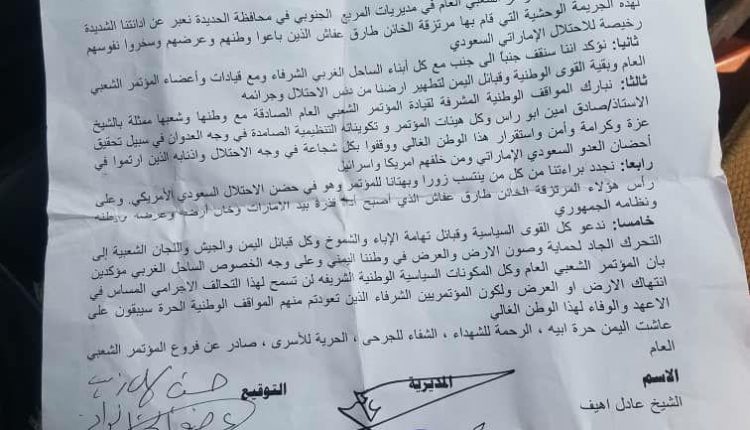 لهذه الجريمة الوحشية التي قام بها مرتزقة الخائن طارق عفاش الذين باعوا وطنهم وعرضهم وسخروا نفوسهم
الشعبي العام في مديريات المربع الجنوبي في محافظة الحديدة نعبر عن ادانتنا الشديدة
رخيصة للاحتلال الإماراتي السعودي
ثانيا: نؤكد اننا سنقف جنباً الى جنب مع كل أبناء الساحل الغربي الشرفاء ومع قيادات وأعضاء المؤتمر الشعبي
العام وبقية القوى الوطنية وقبائل اليمن لتطهير ارضنا من دنس الاحتلال وجرائمه
ثالثا: نبارك المواقف الوطنية المشرفة لقيادة المؤتمر الشعبي العام الصادقة مع وطنها وشعبها ممثلة بالشيخ
الاستاذ/صادق امين ابو راس وكل هيئات المؤتمر و تكويناته التنظيمية الصامدة في وجه العدوان في سبيل تحقيق
عزة وكرامة وأمن واستقرار هذا الوطن الغالي ووقفوا بكل شجاعة في وجه الاحتلال واذنابه الذين ارتموا في
أحضان العدو السعودي الإماراتي ومن خلفهم امريكا واسرائيل
رابعا: نجدد براءتنا من كل من ينتسب زورا وبهتانا للمؤتمر وهو في حضن الاحتلال السعودي الأمريكي. وعلى
رأس هؤلاء المرتزقة الخائن طارق عفاش الذي أصبح قذرة بيد الامارات وخان ارضه وعرضه
ونظامه الجمهوري
خامسا: ندعو كل القوى السياسية وقبائل تهامة الإباء والشموخ وكل قبائل اليمن والجيش واللجان الشعبية إلى
التحرك الجاد لحماية وصون الارض والعرض في وطننا اليمني وعلى وجه الخصوص الساحل الغربي مؤكدين
بان المؤتمر الشعبي العام وكل المكونات السياسية الوطنية الشريفه لن تسمح لهذا التحالف الاجرامي المساس في
انتهاك الارض او العرض ولكون المؤتمريين الشرفاء الذين تعودتم منهم المواقف الوطنية الحرة سيبقون على
الاعهد والوفاء لهذا الوطن الغالي
عاشت اليمن حرة ابيه ، الرحمة للشهداء ، الشفاء للجرحى ، الحرية للأسرى ، صادر عن فروع المؤتمر الشعبي
العام
الاسم المديرية التوقيع
الشيخ عادل اهيف